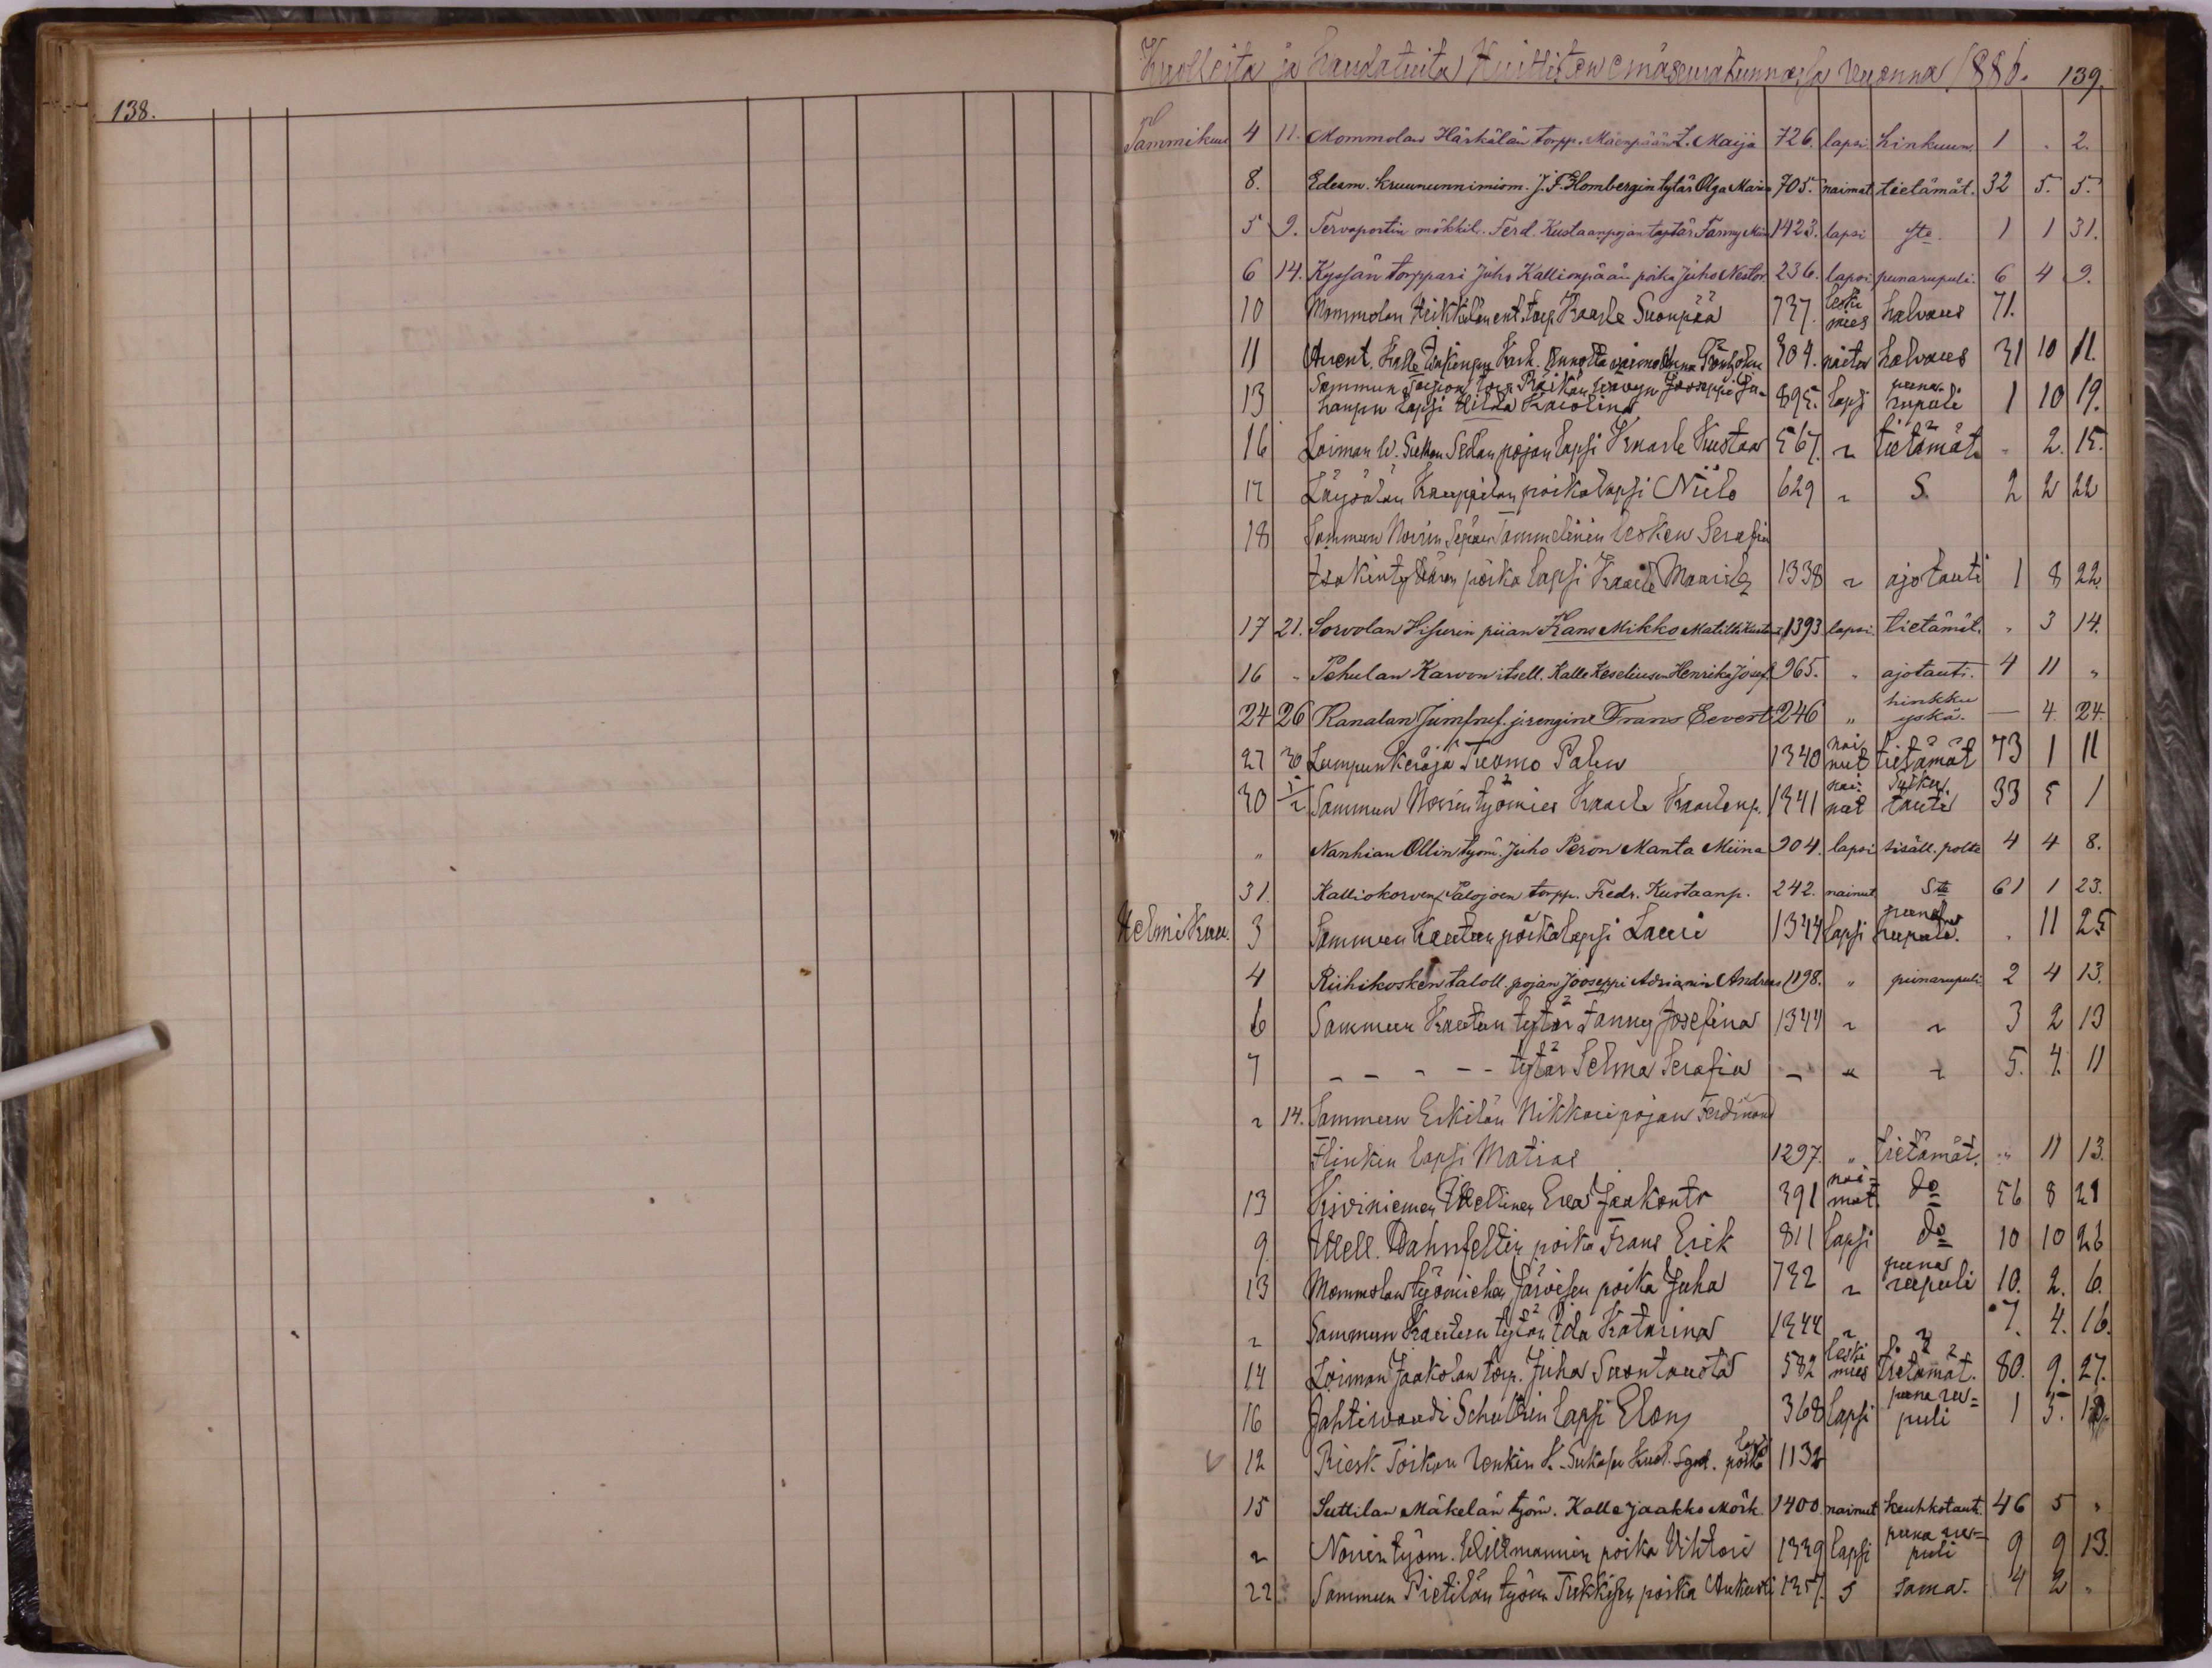 138.
Kuolleita ja haudatuita Huittisten emäseurakunnassa vuonna 1886. 139.
Tammikuu 4 11. Mommolan Härkälän torpp. Mäenpään t. Maija 726. lapsi hinkuun. 1 . 2.
8. Edesm. kruununnimism. J. F. Hombergin tytär Olga Maria 705. naimat. tietämät. 32 5. 5.
5 9. Tervaportin mökkil. Ferd. Kustaanpojan tytär Fanny 1423. lapsi 1 1 31.
6 14. Kyssän torppari Juho Kallionpään poika Juho Nestor. 236. lapsi punarupuli. 6 4 9.
10 Mommolan Heikkilän ent. torp. Kaarle Suonpää 737. leski mies halvaus 71.
11 Kalle vaimo 304. halvaus 31 10 11.
Sammun torp. Jooseppi Ju-
13 hanpn lapsi Hilda Karolina 895. lapsi puna rupuli 1 10 19.
16 Loiman pojan lapsi Kaarle Kustaa 567. " tietämät. - 2. 15.
17 Löysälän Kauppilan poikalapsi Niilo 629 " S 2 2 22
18 Sammun Norrin Sepän Tammelinin lesken Serafia
Isakintyttären poika lapsi Kaarle Mauritz 1338 " ajotauti 1 8 22.
17 21. Sorvolan piian Kans Mikko Matilda 1393 lapsi. tietämät. " 3 14.
16 " Pehulan Karvon itsell. Kalle Keseliusen Henrika Josef. 965. " ajotauti. 4 11 "
24 26 Ranalan rengin Frans Eevert 246 " hinkku yskä. — 4. 24.
27 30 Lumpunkerääjä Tuomo Palin 1340 nai nut tietämät 73 1 11
30 Sammun Norrin työmies Kaarle Kaarlenp. 1341 tauti 33 5 1
" Nanhian Ollin työm. Juho Peron Manta Miina 904. lapsi sisäll. polte 4 4 8.
31. Kalliokorven Palojoen torpp. Fredr. Kustaanp. 242. nainut Ste 61 1 23.
Helmikuu. 3 Sammun Kautun poikalapsi Lauri 1344 lapsi puna rupuli. . 11 25
4 Riihikosken taloll. pojan Jooseppi Adrianin Andreas 1198. " punarupuli 2 4 13.
6 Sammun Kautun tytär Fanny Josefina 1344 " " 3 2 13
7 - - - - - tytär Selma Serafia - " " 5. 4. 11
" 14. Sammun Erkilän Nikkari pojan Ferdinand
Flinkin lapsi Matias 1297. " tietämät. " 11 13.
13 Kiviniemen Itsellinen Eva Jaakontr 391 nai= mat. do 56 8 21
9 Itsell. Dahnfeltin poika Frans Erik 811 lapsi do 10 10 26
13 Mommolan työmiehen Järvisen poika Juha 732 " puna rupuli 10. 2. 6.
" Sammun Kautun tytär Ida Katarina 1344 " " 7. 4. 16.
14 Loiman Jaakolan torp. Juha Suontausta 582 leski mies tietämät. 80. 9. 27.
16 Jahtivoudi Schultzin lapsi Elon 368 lapsi puna ru= puli 1 5.
12 Riesk. Toikon renkin K. lapsi poika 1132
15 Suttilan Mäkelän työm. Kalle Jaakko Mörk. 1400. nainut keuhkotauti 46 5 "
" Norrin työm. Willmannin poika Vihtori 1339 lapsi puna ru= puli 9 9 13.
22 Sammun Pietilän työm. Tukkisen poika Aukusti 1357. S sama. 4 2 "